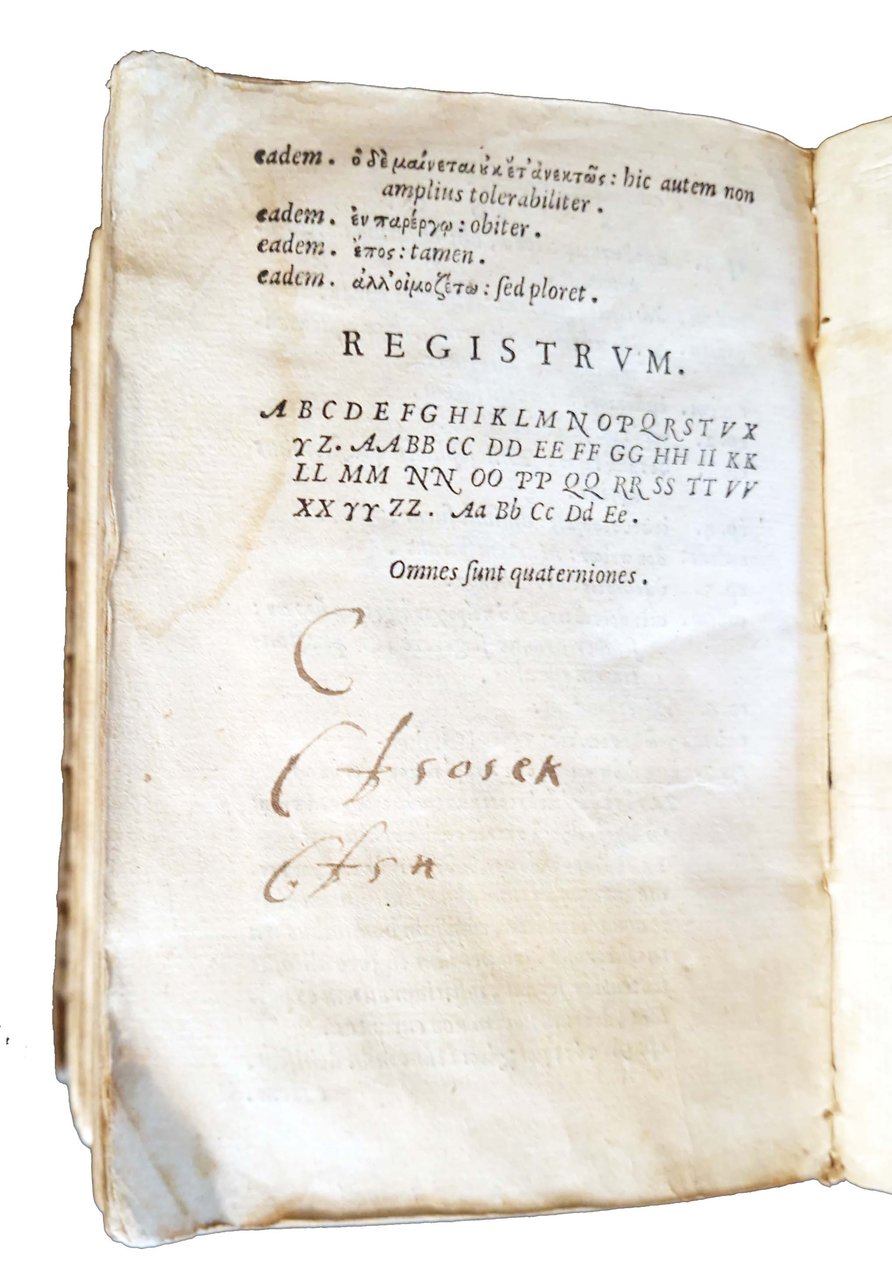 eadem. ὁ δὲ μαίνεται ȣ̓κ ἔτ' ἀνεκτῶς: hic autem non
amplius tolerabiliter.
eadem. ἐν παρέργῳ: obiter.
eadem. ἔπος: tamen.
eadem. ἀλλ' οἰμοζέτω: ſed ploret.
REGISTRVM.
A B C D E F G H I K L M N O P Q R S T V X
Y Z. AA BB CC DD EE FF GG HH II KK
LL MM NN OO PP QQ RR SS TT VV
XX YY ZZ. Aa Bb Cc Dd Ee.
Omnes ſunt quaterniones.
C